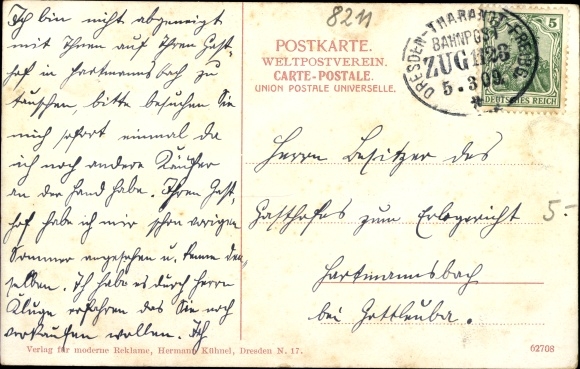 8211
Ich bin nicht abgeneigt
mit Ihnen auf Ihren Gast-
hof in Hartmannsbach zu
tauschen, bitte besuchen Sie
mich sofort einmal da
ich noch andere Käufer
an der Hand habe. Ihren Gast-
hof habe ich mir schon vorigen
Sommer angesehen u. kenne den-
selben. Ich habe es durch Herrn
Kluge erfahren das Sie noch
verkaufen wollen. Ich
POSTKARTE.
WELTPOSTVEREIN.
CARTE-POSTALE.
UNION POSTALE UNIVERSELLE.
DRESDEN-THARANDT-FREIBG.
BAHNPOST
ZUG 1128
5.3.09
5
DEUTSCHES REICH
Herrn Besitzer des
Gasthofes zum Erbgericht
5-
Hartmannsbach
bei Gottleuba.
Verlag für moderne Reklame, Hermann Kühnel, Dresden N. 17.
62708